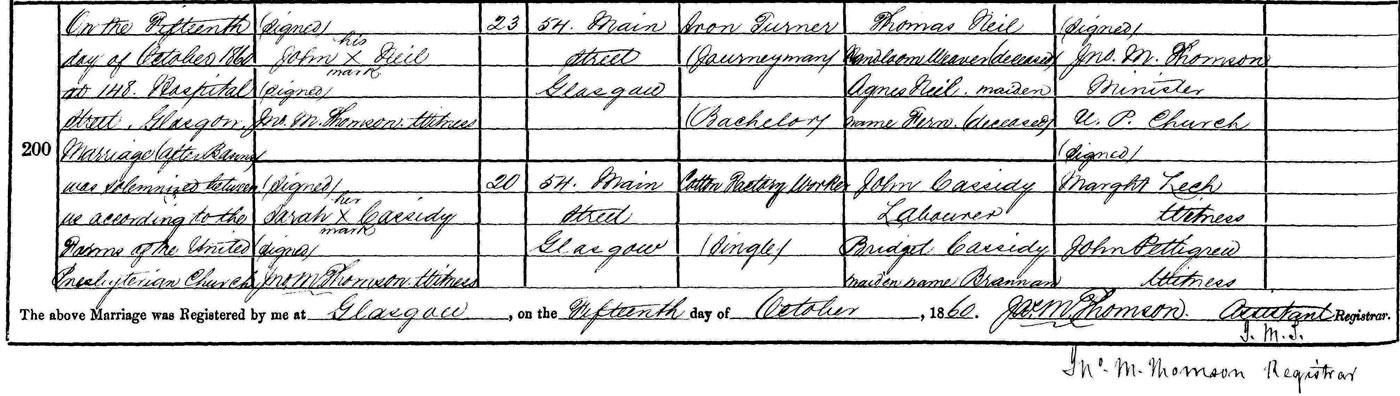 200
On the Fifteenth
day of October 1860
at 148. Hospital
Street, Glasgow
Marriage (after Banns)
was solemnized between
us according to the
Forms of the United
Presbyterian Church
(signed)
his
John X Neil
mark
(signed)
Jno. M. Thomson. Witness
(signed)
her
Sarah X Cassidy
mark
(signed)
Jno M Thomson Witness
23
20
54. Main
Street
Glasgow
54. Main
Street
Glasgow
Iron Turner
(Journeyman)
(Bachelor)
Cotton Factory Worker
(Single)
Thomas Neil
Handloom Weaver (deceased)
Agnes Neil. maiden
name Fern. (deceased)
John Cassidy
Labourer
Bridget Cassidy
maiden name Brannan
(signed)
Jno. M. Thomson
Minister
U. P. Church
(signed)
Marght Lech
Witness
John Pettigrew
Witness
The above Marriage was Registered by me at Glasgow, on the Fifteenth day of October, 1860. Jno. M. Thomson. Assistant Registrar.
J. M. T.
Jno. M. Thomson Registrar